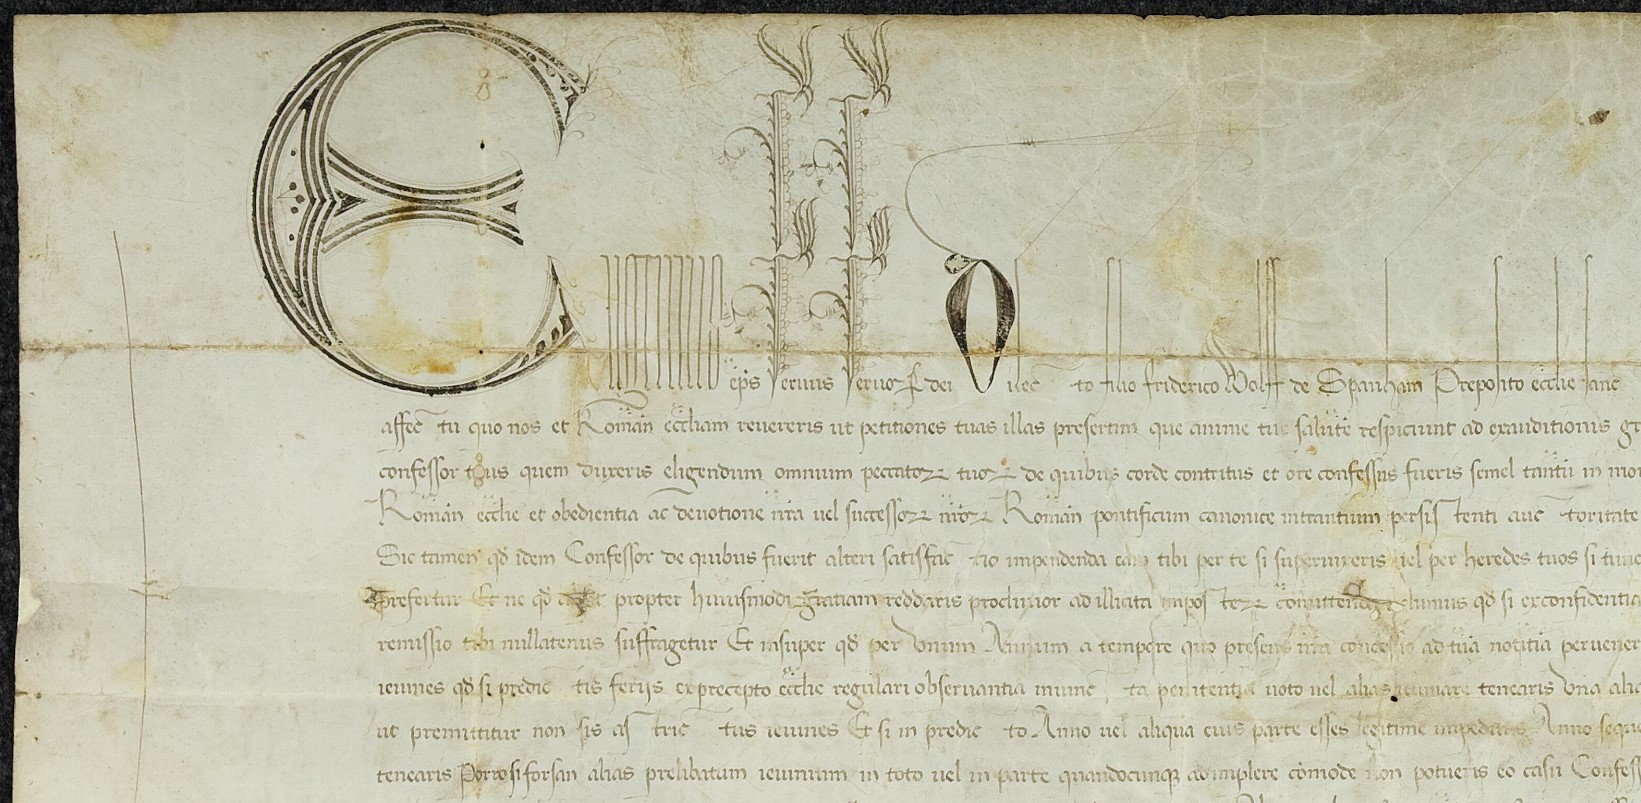 E eps servus servorꝝ dei Dilec to filio friderico Wolff de Spanham Preposito ecclie sanc
affec tu quo nos et Roman eccliam revereris ut petitiones tuas illas presertim que anime tue salute respiciunt ad exauditionis gr
confessor quem duxeris eligendum omnium peccatorꝝ tuorꝝ de quibus corde contritus et ore confessus fueris semel tantu in mor
Roman ecclie et obedientia ac devotione nra vel successorꝝ nrorꝝ Roman pontificum canonice intrantium persis tenti auc toritate
Sic tamen qd idem Confessor de quibus fuerit alteri satisfac tio impendenda eam tibi per te si supervixeris vel per heredes tuos si tunc
prefertur Et ne qd propter huiusmodi gratiam reddaris proclivior ad illicita impos terꝝ volumus qd si ex confidentia
remissio tibi nullatenus suffragetur Et insuper qd per Unum Annum a tempore quo presens nra concessio ad tua notitia pervener
ieiunes qd si predic tis ferijs ex precepto ecclie regulari observantia iniunc ta penitentia voto vel alias ieiunare tenearis Una alia
ut premittitur non sis as tric tus ieiunes Et si in predic to Anno vel aliqua eius parte esses legitime impeditus Anno seque
tenearis Porro si forsan alias prelibatum ieiunium in toto vel in parte quandocunqꝫ adimplere comode non potueris eo casu Confess